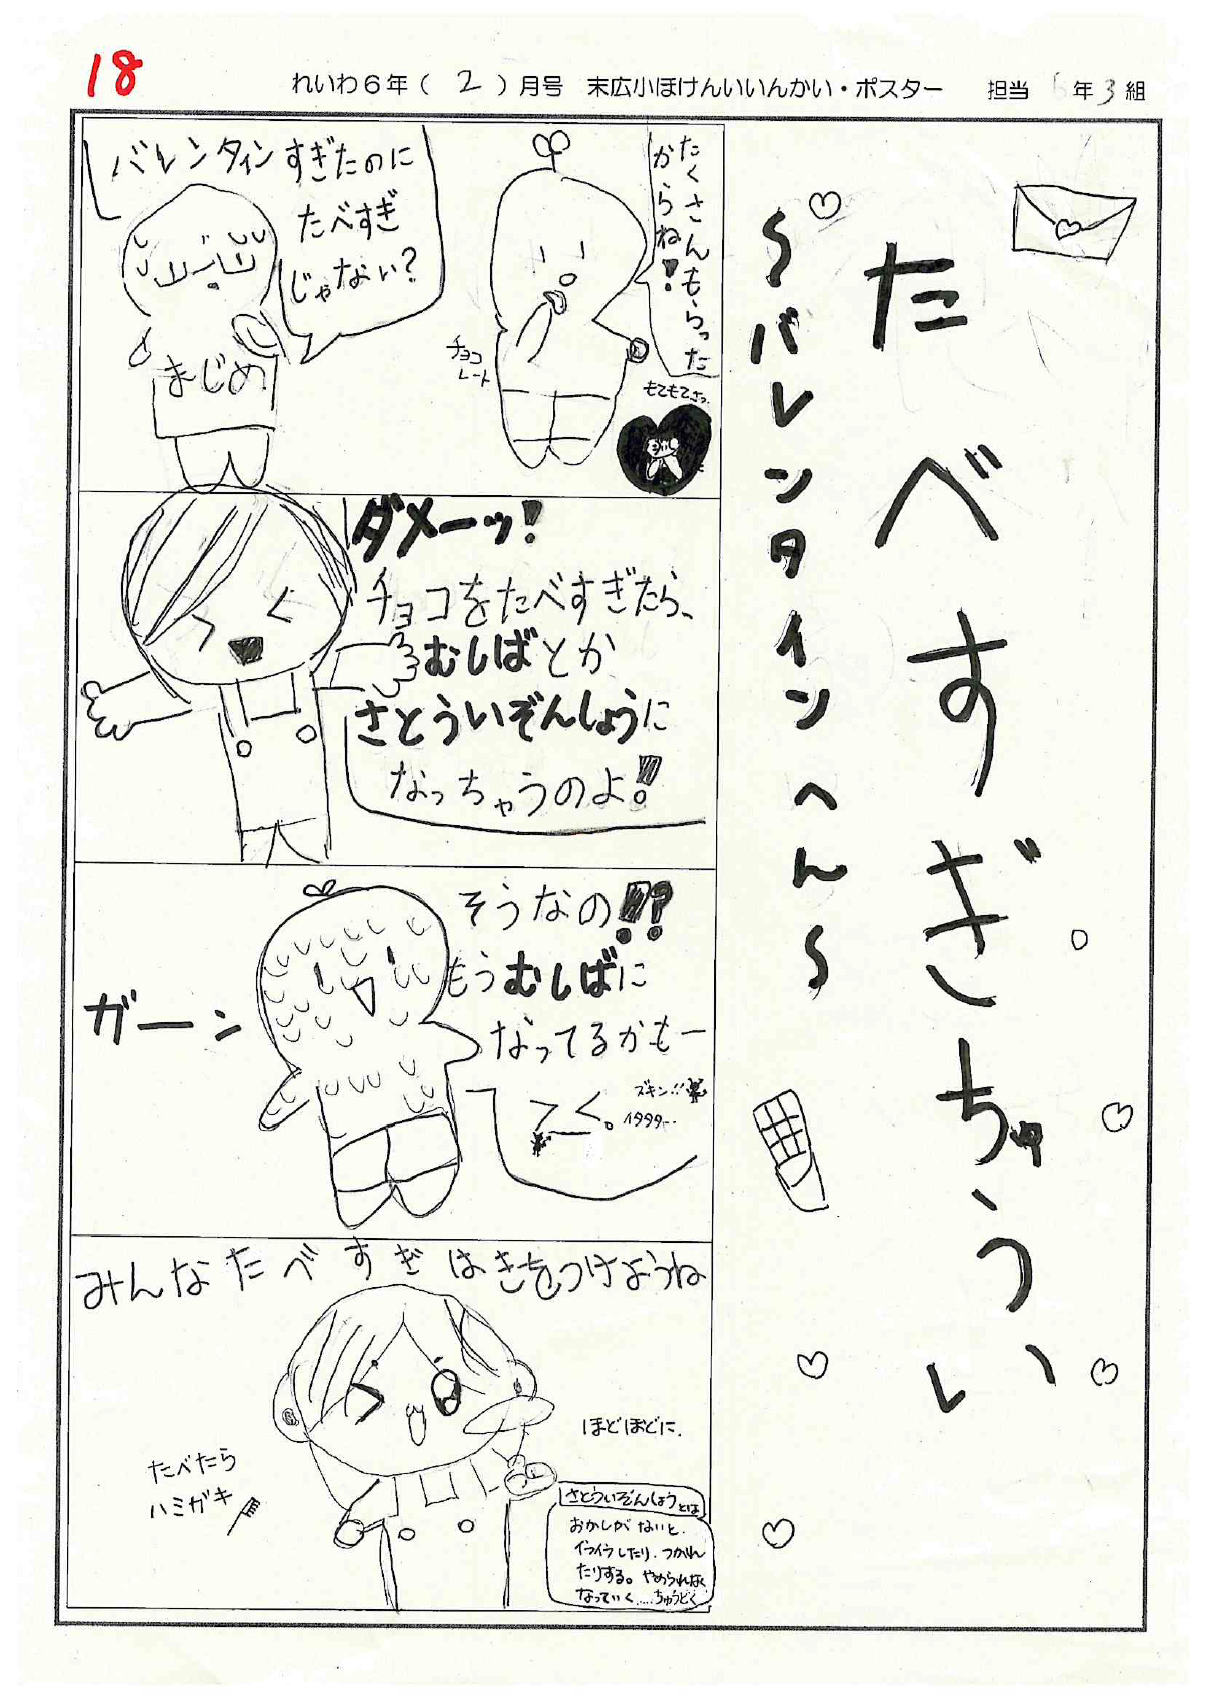 18
れいわ6年( 2 )月号 末広小ほけんいいんかい・ポスター 担当 6年3組
たべすぎちゅうい
～バレンタインへん～
たくさんもらった
からね!
もてもてさっ
チョコ
レート
バレンタインすぎたのに
たべすぎ
じゃない?
まじめ
ダメーッ!
チョコをたべすぎたら、
むしばとか
さとういぞんしょうに
なっちゃうのよ!!
そうなの!!?
もうむしばに
なってるかもー
ズキン!!
イタタタ…
ガーン
みんなたべすぎはきをつけようね
ほどほどに.
たべたら
ハミガキ
さとういぞんしょうとは
おかしがないと、
イライラしたり、つかれ
たりする。やめられなく
なっていく……ちゅうどく